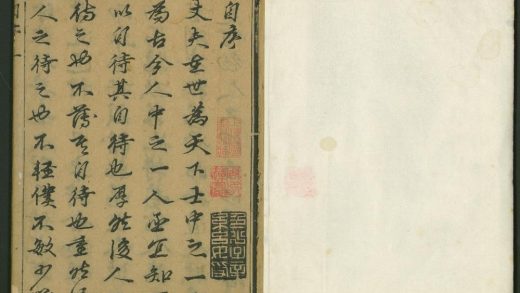 自序
丈夫在世為天下士中之一
為古今人中之一人亟宜知
以自待其自待也厚然後人
待之也不薄其自待也重然後
人之待之也不輕僕不敏少